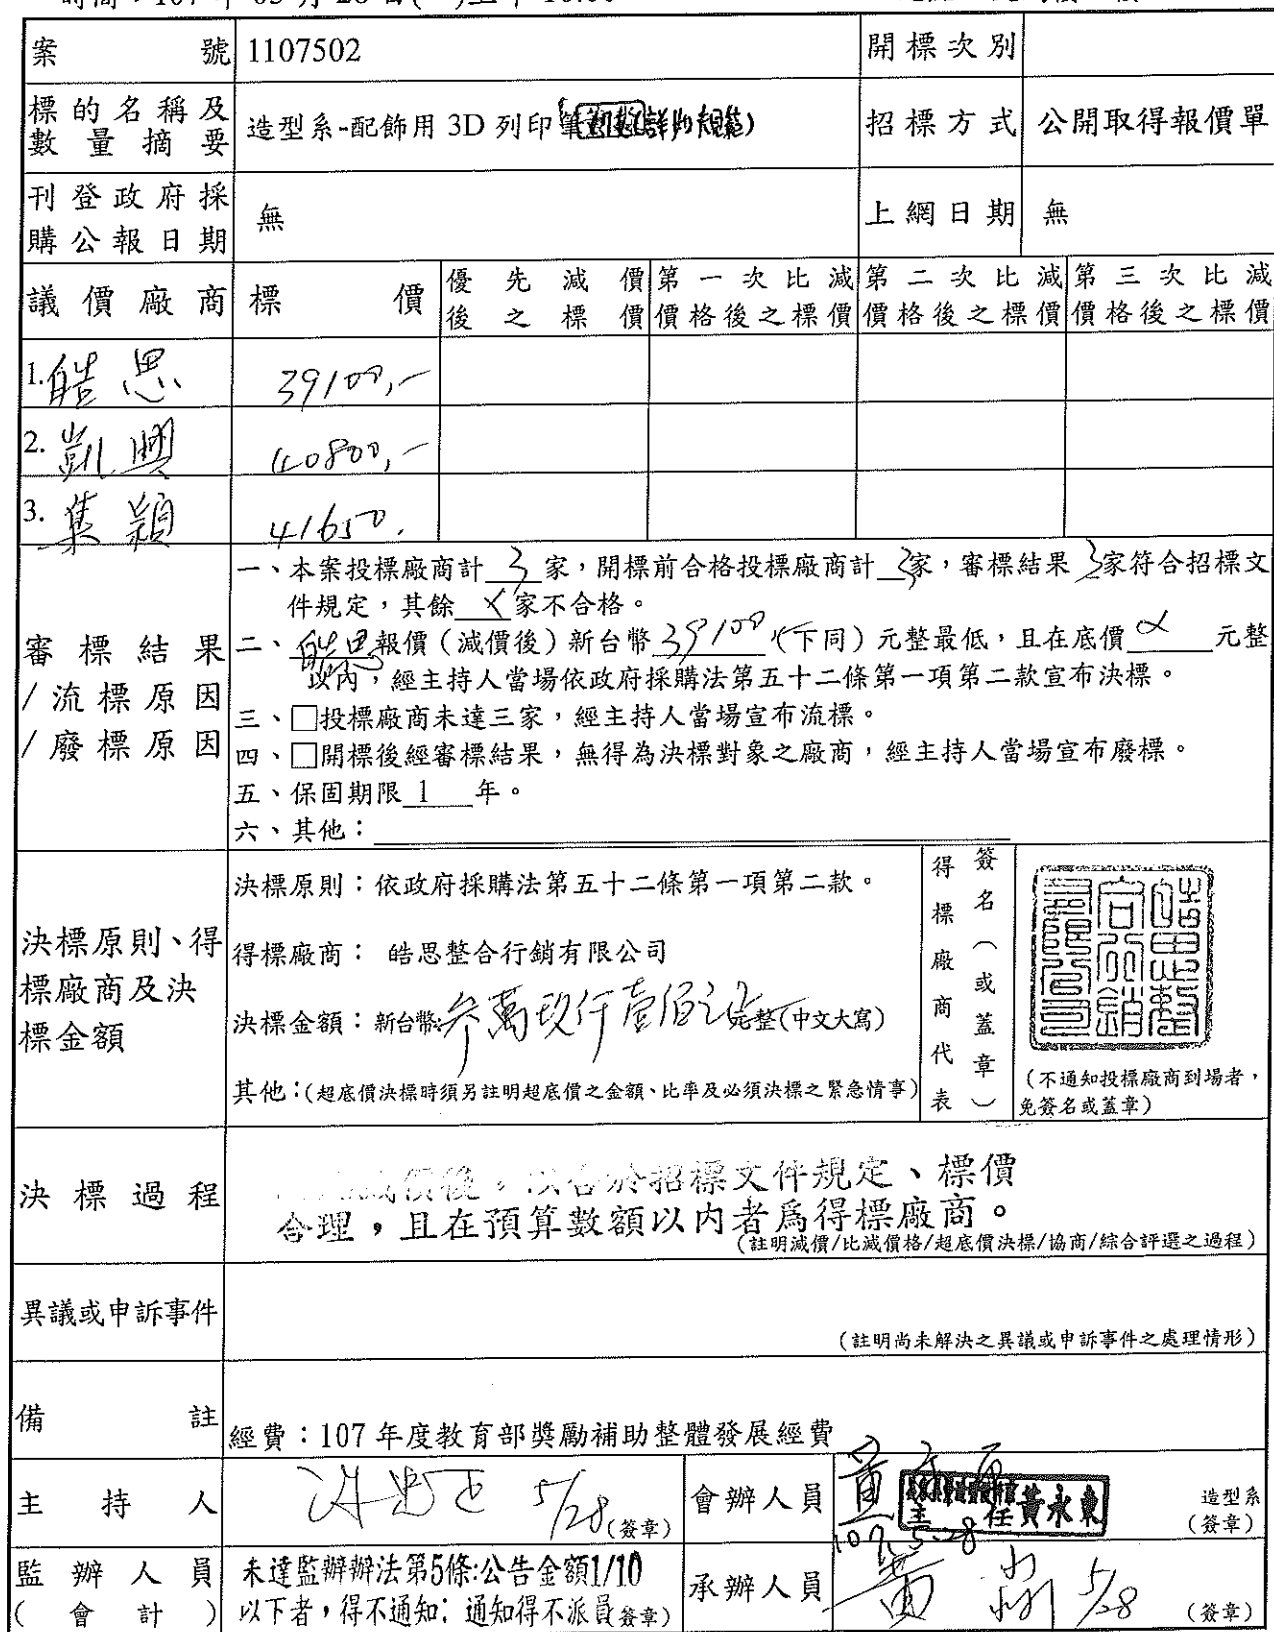 案號 1107502 開標次別
標的名稱及數量摘要 造型系-配飾用 3D 列印筆 招標方式 公開取得報價單
刊登政府採購公報日期 無 上網日期 無
議價廠商 標價 優先減價後之標價 第一次比減價格後之標價 第二次比減價格後之標價 第三次比減價格後之標價
1. 皓思 39100,-
2. 凱興 40800,-
3. 集穎 41650.
審標結果/流標原因/廢標原因
一、本案投標廠商計 3 家，開標前合格投標廠商計 3 家，審標結果 3 家符合招標文
件規定，其餘 X 家不合格。
二、皓思報價（減價後）新台幣 39100 （下同）元整最低，且在底價 元整
以內，經主持人當場依政府採購法第五十二條第一項第二款宣布決標。
三、□投標廠商未達三家，經主持人當場宣布流標。
四、□開標後經審標結果，無得為決標對象之廠商，經主持人當場宣布廢標。
五、保固期限 1 年。
六、其他：
決標原則、得標廠商及決標金額
決標原則：依政府採購法第五十二條第一項第二款。
得標廠商： 皓思整合行銷有限公司
決標金額：新台幣:參萬玖仟壹佰元整(中文大寫)
其他：(超底價決標時須另註明超底價之金額、比率及必須決標之緊急情事)
得標廠商代表
簽名（或蓋章）
皓思整合行銷有限公司
（不通知投標廠商到場者，
免簽名或蓋章）
決標過程
減價後，以合於招標文件規定、標價
合理，且在預算數額以內者為得標廠商。
(註明減價/比減價格/超底價決標/協商/綜合評選之過程)
異議或申訴事件
(註明尚未解決之異議或申訴事件之處理情形)
備註 經費：107 年度教育部獎勵補助整體發展經費
主持人 5/28 (簽章) 會辦人員 主任黃永東 107.5.28 造型系
(簽章)
監辦人員
(會計)
未達監辦辦法第5條:公告金額1/10
以下者，得不通知；通知得不派員 (簽章)
承辦人員 黃 5/28 (簽章)